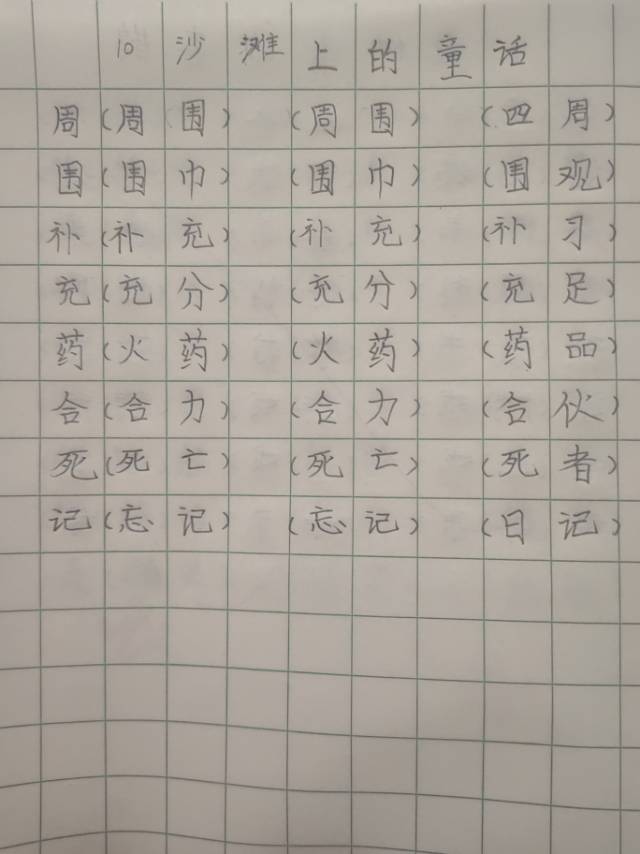 10 沙滩上的童话
周(周围) (周围) (四周)
围(围巾) (围巾) (围观)
补(补充) (补充) (补习)
充(充分) (充分) (充足)
药(火药) (火药) (药品)
合(合力) (合力) (合伙)
死(死亡) (死亡) (死者)
记(忘记) (忘记) (日记)